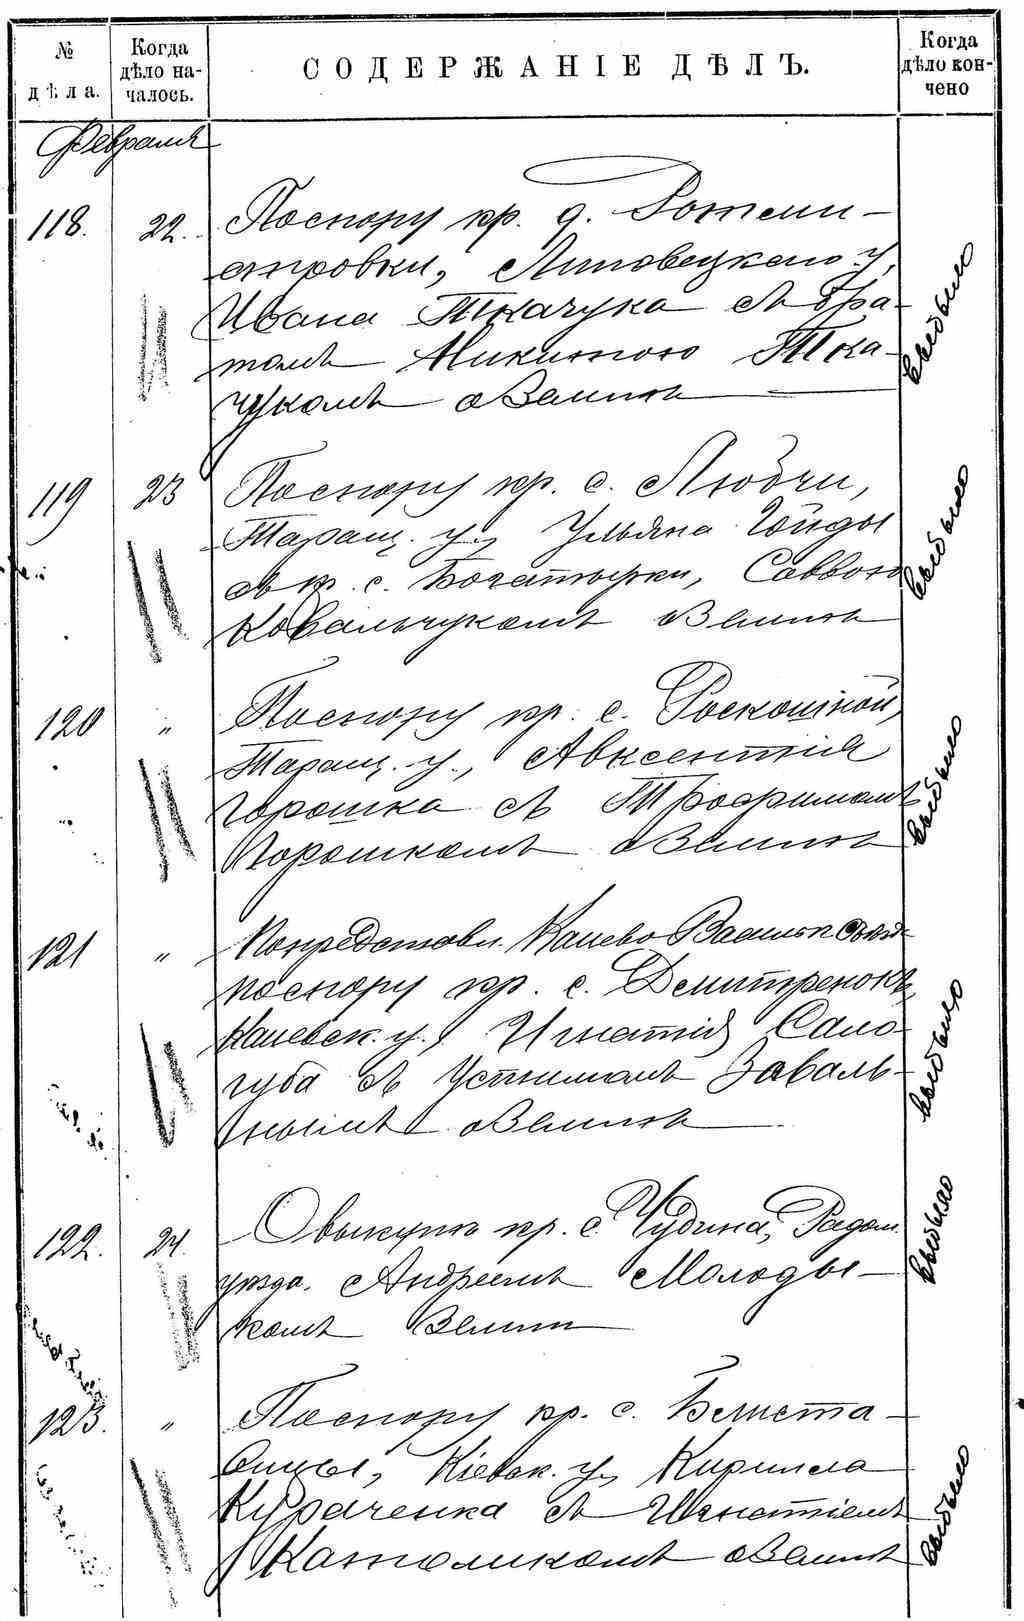 № дѣла.
Когда дѣло началось.
СОДЕРЖАНІЕ ДѢЛЪ.
Когда дѣло кончено
Февраля
118. 22. По спору кр. д. Ротми-
стровки, Липовецкаго у,
Ивана Ткачука съ бра-
томъ Никитою Тка-
чукомъ о землѣ
выбыло
119 23 По спору кр. с. Любчи,
Таращ. у., Ульяна Гойды
съ кр. с. Богатырки, Саввою
Ковальчукомъ о землѣ
выбыло
120 " По спору кр. с. Роскошной,
Таращ. у., Авксентія
Горошка съ Трофимомъ
Горошкомъ о землѣ
выбыло
121 " По представл. Канево Васильк.
по спору кр. с. Дмитренокъ,
Каневск. у., Игнатія Сало-
губа съ Устимомъ Заваль-
нымъ о землѣ
выбыло
122. 24. О выкупѣ кр. с. Чудина, Радом.
уѣзда. Андреемъ Молоды-
комъ земли
выбыло
123. " По спору кр. с.
Кіевск. у, Кирилла
Кураченка съ Игнатіемъ
Католикомъ о землѣ
выбыло